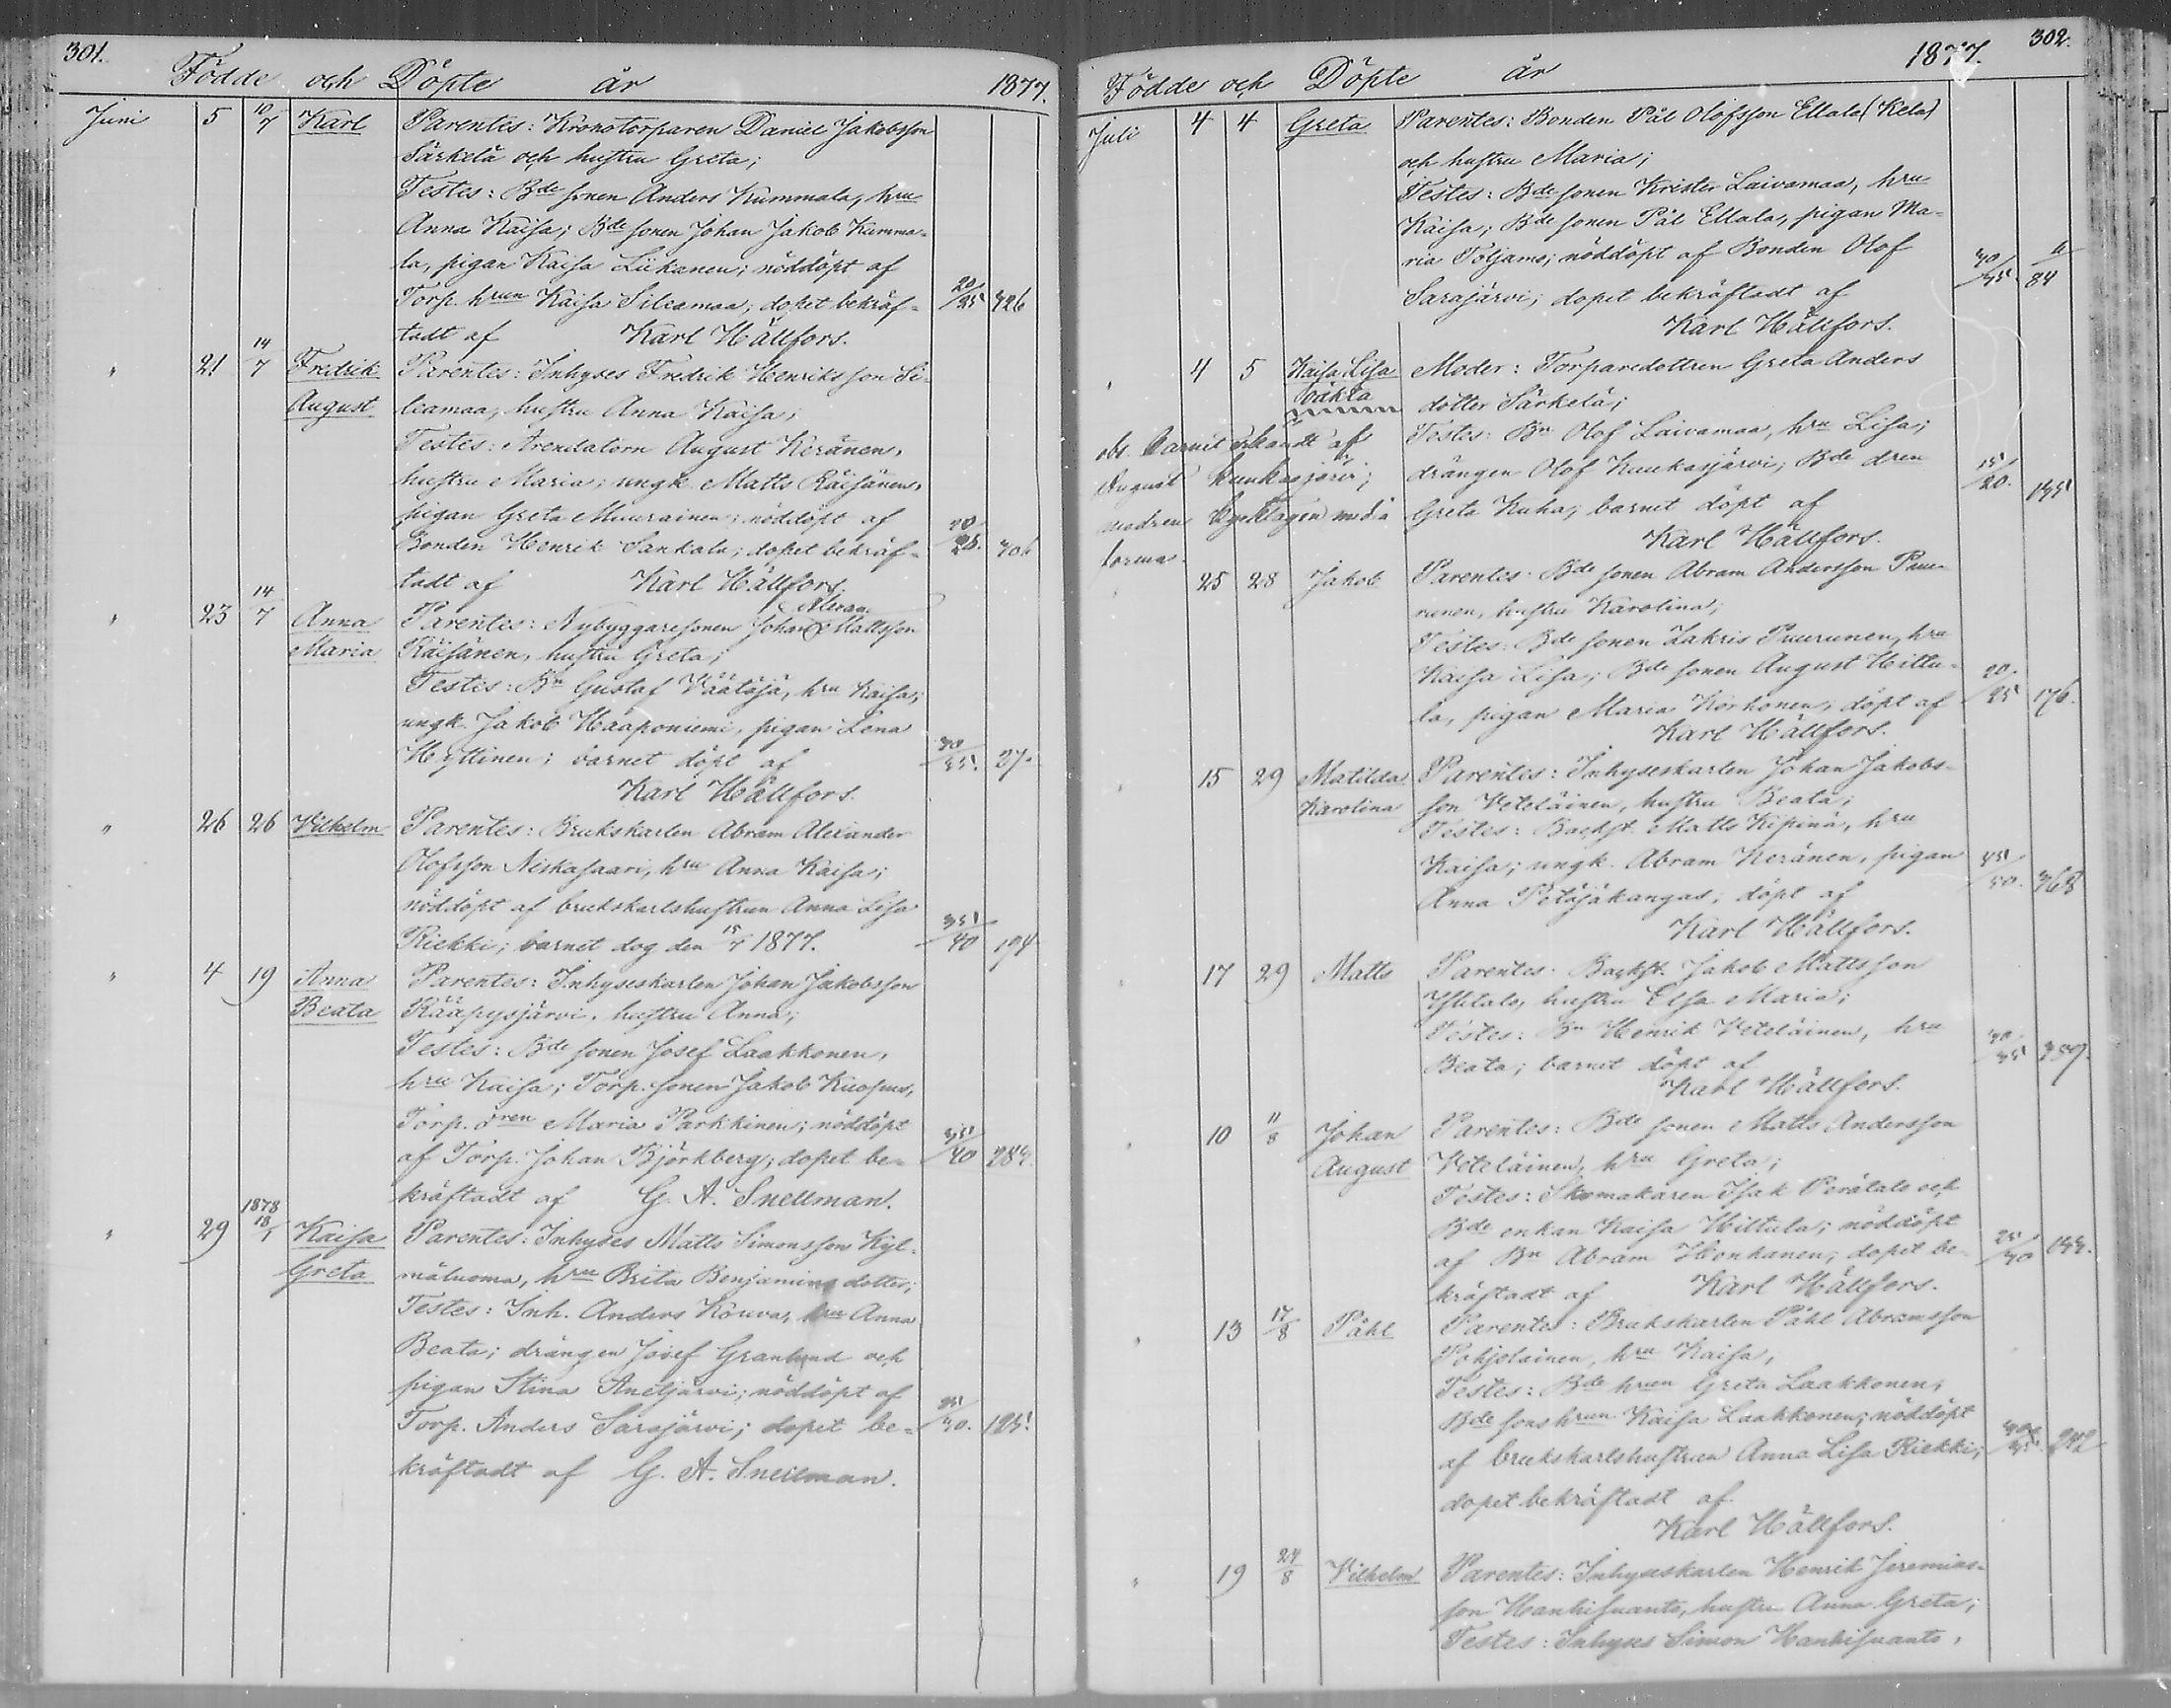 301.
Födde och Döpte år 1877.
Juni 5 10/7 Karl Parentes: Kronotorparen Daniel Jakobsson
Särkelä och hustru Greta;
Testes: Bde sonen Anders Kummala, hru
Anna Kaisa; Bde sonen Johan Jakob Kumma-
la, pigan Kaisa Liikanen; nöddöpt af
Torp. hrun Kaisa Sileamaa; dopet bekräf- 20/25 326
tadt af Karl Hällfors.
" 21 14/7 Fredrik Parentes: Inhyses Fredrik Henriksson Si-
August leamaa, hustru Anna Kaisa;
Testes: Arendatorn August Keränen,
hustru Maria; ungk. Matts Räisänen,
pigan Greta Muurainen; nöddöpt af
Bonden Henrik Sankala; dopet bekräf- 20/25. 306
tadt af Karl Hällfors.
" 23 14/7 Anna Parentes: Nybyggaresonen Johan Alexan. Mattsson
Maria Räisänen, hustru Greta;
Testes: Bn Gustaf Väätäjä, hru Kaisa;
ungk. Jakob Haaponiemi, pigan Lena
Hyttinen; barnet döpt af 30/35. 27.
Karl Hällfors.
" 26 26 Vilhelm Parentes: Brukskarlen Abram Alexander
Olofsson Niskasaari, hru Anna Kaisa;
nöddöpt af brukskarlshustrun Anna Lisa
Riekki; barnet dog den 15/7 1877. 35/40 194
" 4 19 Anna Parentes: Inhyseskarlen Johan Jakobsson
Beata Rääpysjärvi, hustru Anna;
Testes: Bde sonen Josef Laakkonen,
hru Kaisa; Torp. sonen Jakob Kuopus,
Torp. dren Maria Parkkinen; nöddöpt
af Torp. Johan Björkberg; dopet be- 35/40 284.
kräftadt af G. A. Snellman.
" 29 1878 18/1 Kaisa Parentes: Inhyses Matts Simonsson Kyl-
Greta mäluoma, hru Brita Benjamins dotter;
Testes: Inh. Anders Körwa, hru Anna
Beata; drängen Josef Granlund och
pigan Stina Anetjärvi; nöddöpt af
Torp. Anders Sarajärvi; dopet be- 25/30. 125.
kräftadt af G. A. Snellman.
302.
Födde och Döpte år 1877.
Juli 4 4 Greta Parentes: Bonden Pål Olofsson Ellala (Kela)
och hustru Maria;
Testes: Bde sonen Krister Laivamaa, hru
Kaisa; Bde sonen Pål Ellala, pigan Ma-
ria Toljamo; nöddöpt af Bonden Olof
Sarajärvi; dopet bekräftadt af 30/35 11/84
Karl Hällfors.
" 4 5 Kaisa Lisa Moder: Torparedottren Greta Anders
oäkta dotter Särkelä;
obs. Barnet erkändt af Testes: Bn Olof Laivamaa, hru Lisa;
August Kuukasjärvi; drängen Olof Kuukasjärvi, Bde dren 15/20. 155
modren kyrktagen Greta Kuha; barnet döpt af
Karl Hällfors.
25 28 Jakob Parentes: Bde sonen Abram Andersson Puu-
runen, hustru Karolina;
Testes: Bde sonen Zakris Puurunen, hru
Kaisa Lisa; Bde sonen August Hiltu-
la, pigan Maria Korhonen; döpt af 20/25 176.
Karl Hällfors.
15 29 Matilda Parentes: Inhyseskarlen Johan Jakobs-
Karolina son Veteläinen, hustru Beata;
Testes: Backst. Matts Kipinä, hru
Kaisa; ungk. Abram Keränen, pigan 45/50. 368
Anna Petäjäkangas; döpt af
Karl Hällfors.
17 29 Matts Parentes: Backst. Jakob Mattsson
Ylitalo, hustru Elsa Maria;
Testes: Bn Henrik Veteläinen, hru 30/35 359.
Beata; barnet döpt af
Karl Hällfors.
10 11/8 Johan Parentes: Bde sonen Matts Andersson
August Veteläinen, hru Greta;
Testes: Skomakaren Isak Perätalo och
Bde enkan Kaisa Hiltula; nöddöpt
af Bn Abram Honkanen; dopet be- 25/30 144.
kräftadt af Karl Hällfors.
13 17/8 Påhl Parentes: Brukskarlen Påhl Abramsson
Pohjolainen, hru Kaisa;
Testes: Bde hrun Greta Laakkonen,
Bde sons hrun Kaisa Laakkonen; nöddöpt
af brukskarlshustrun Anna Lisa Riekki; 30/35. 242
dopet bekräftadt af
Karl Hällfors.
" 19 24/8 Vilhelm Parentes: Inhyseskarlen Henrik Jeremias-
son Hanhisuanto, hustru Anna Greta;
Testes: Inhyses Simon Hanhisuanto,